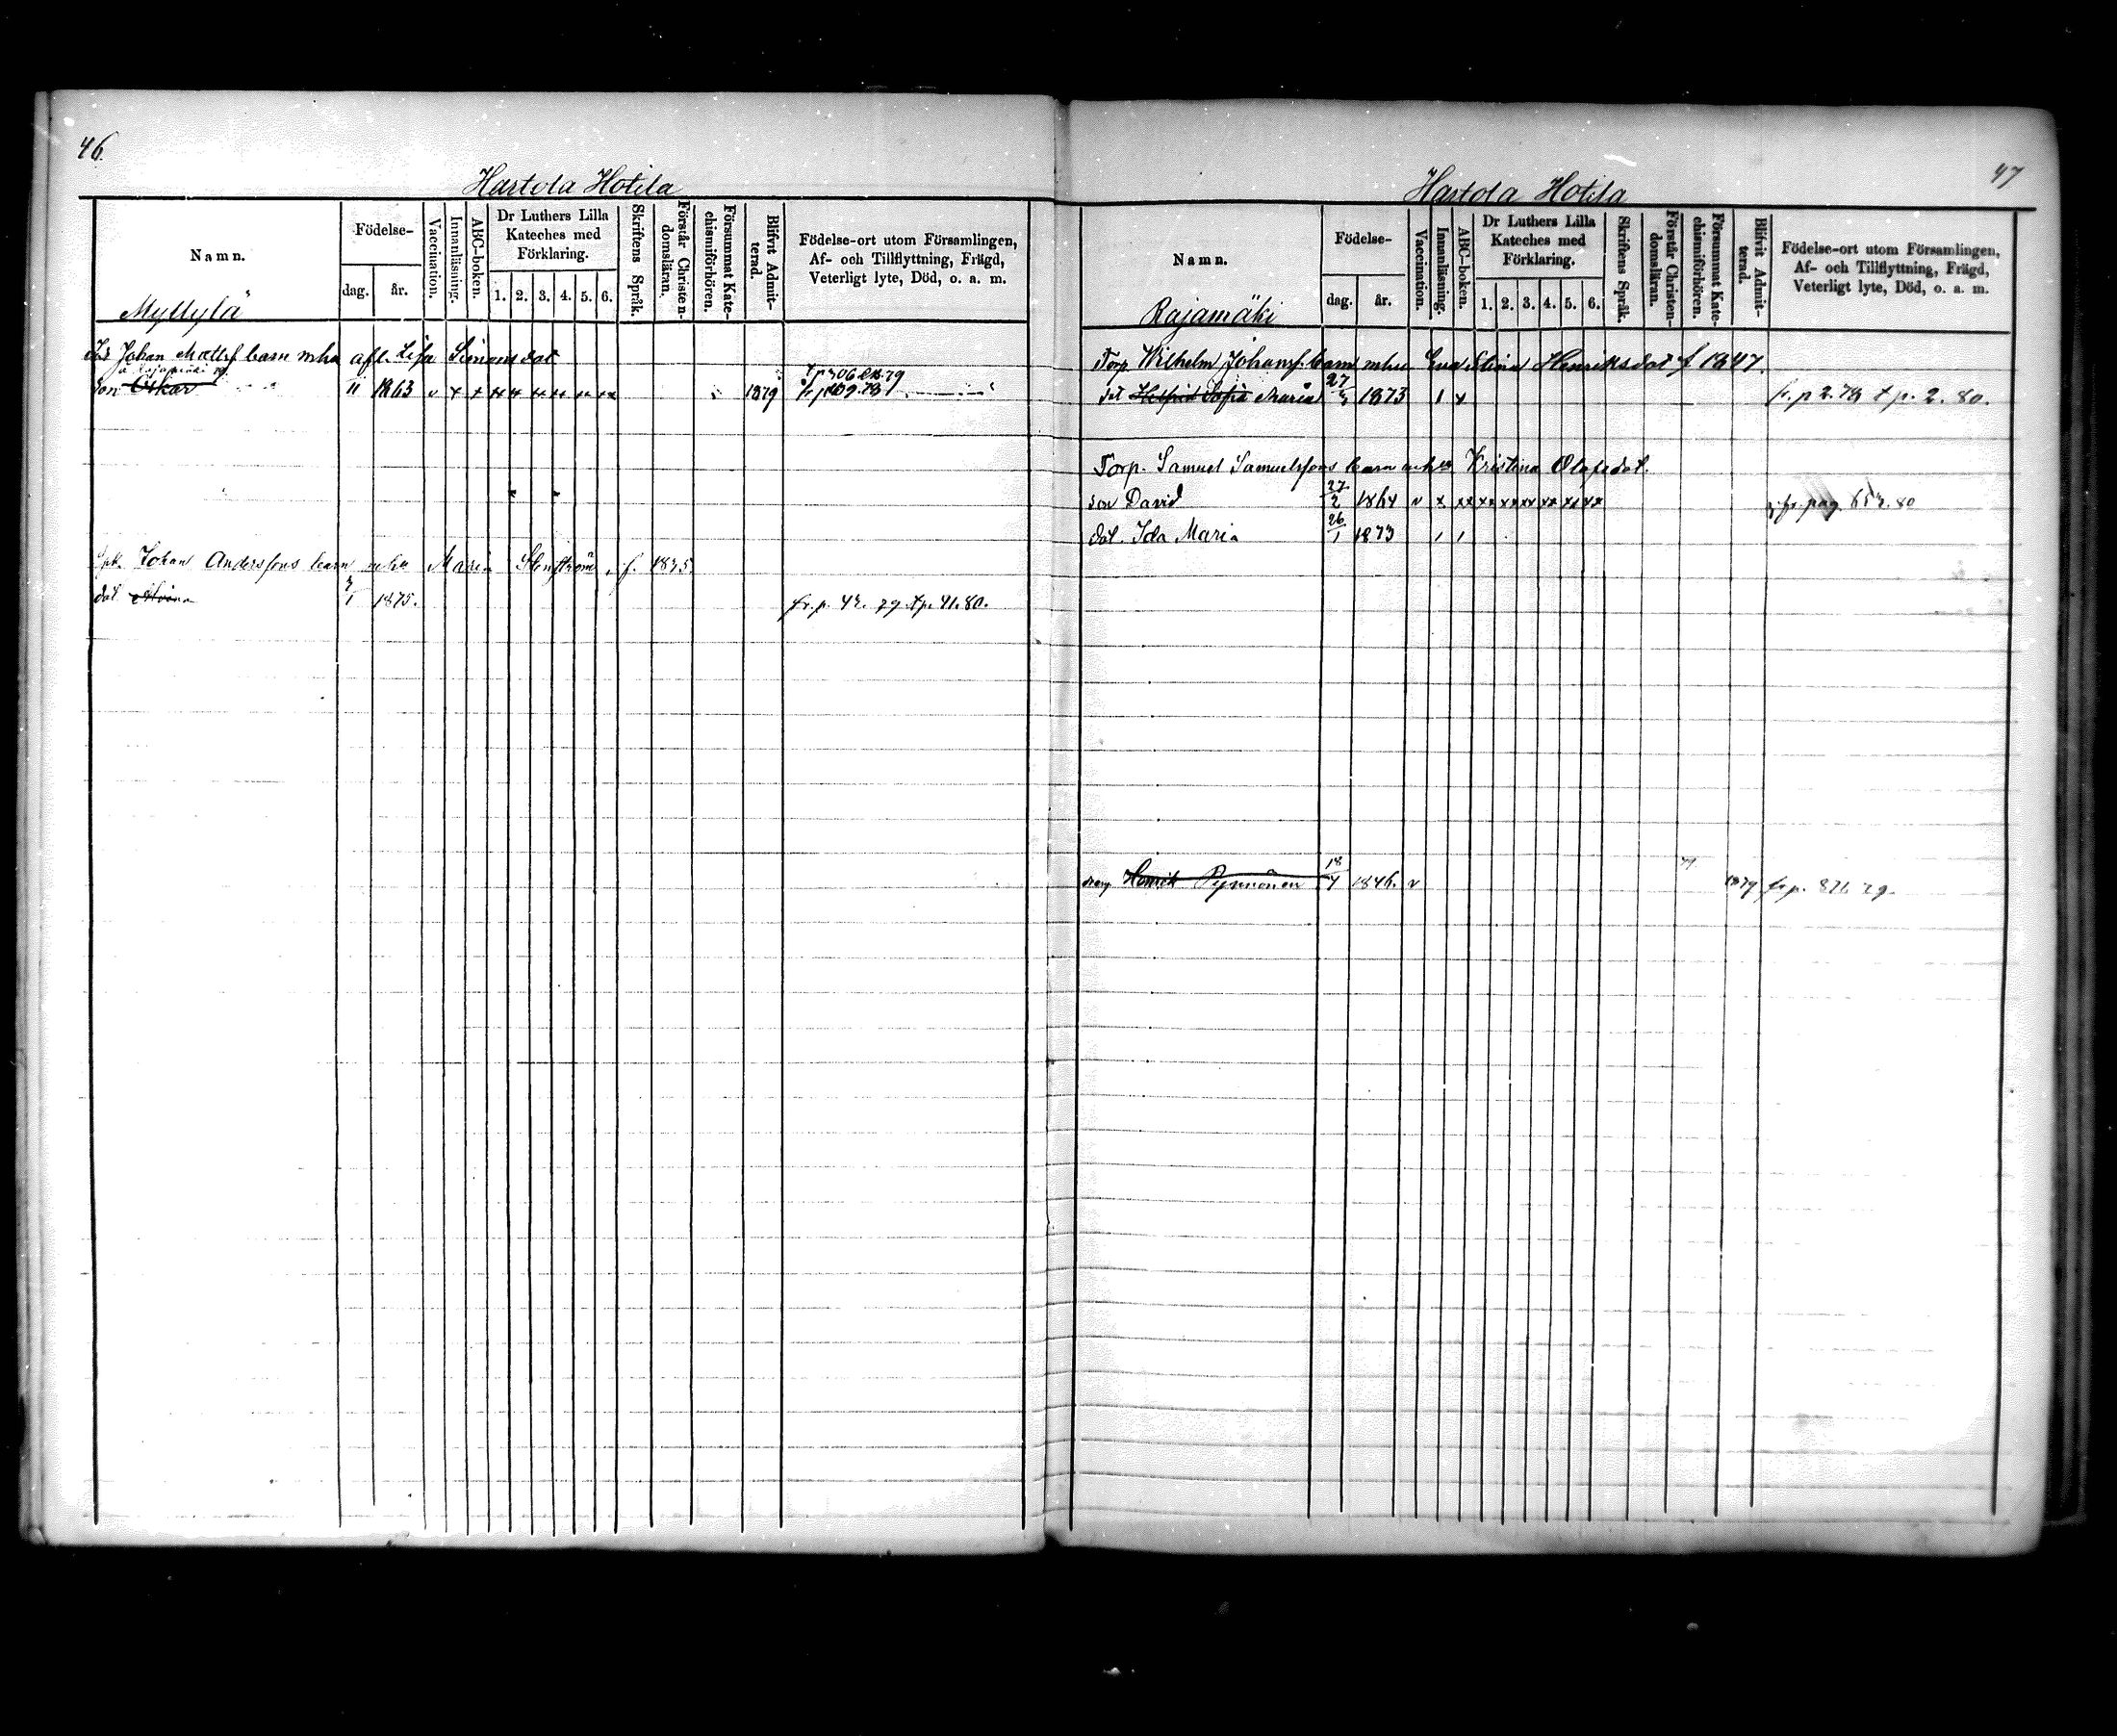 46.
Hartola Hotila
Namn.
Födelse-
dag.
år.
Vaccination.
Innanläsning.
ABC-boken.
Dr Luthers Lilla
Kateches med
Förklaring.
1. 2. 3. 4. 5. 6.
Skriftens Språk.
Förstår Christen-
domsläran.
Försummat Kate-
chismiförhören.
Blifvit Admit-
terad.
Födelse-ort utom Församlingen,
Af- och Tillflyttning, Frägd,
Veterligt lyte, Död, o. a. m.
Myllylä
Johan Mattsf. barn mhu afl. Lisa Simonsdot
Son Oskar 11 1863 v x x xx xx xx xx xx xx 1879
Johan Anderssons barn mhu Maria f. 1835.
dot. 1875. fr. p. 42. 79. tp. 41. 80.
47
Hartola Hotila
Namn.
Födelse-
dag.
år.
Vaccination.
Innanläsning.
ABC-boken.
Dr Luthers Lilla
Kateches med
Förklaring.
1. 2. 3. 4. 5. 6.
Skriftens Språk.
Förstår Christen-
domsläran.
Försummat Kate-
chismiförhören.
Blifvit Admit-
terad.
Födelse-ort utom Församlingen,
Af- och Tillflyttning, Frägd,
Veterligt lyte, Död, o. a. m.
Rajamäki
Torp. Wilhelm Johansf. barn mhu Eva Stina Henriksdot f 1847.
dot Sofia Maria 27 1873 fr. p 2. 78 t p. 2. 80.
Torp. Samuel Samuelssons barn mhu Kristina Olofsdot.
son David 27/2 1864 v x xx xx xx xx xx xx xx fr. pag. 80
dot. Ida Maria 26/1 1873
Henrik Pynnönen 18/4 1846. v 1879 fr p. 79.